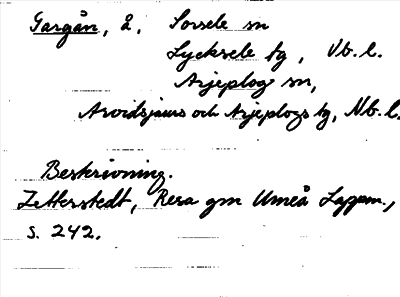 Gargån, å. Sorsele sn
Lycksele tg, Vb. l.
Arjeplog sn,
Arvidsjaurs och Arjeplogs tg, Nb. l.
Beskrivning.
Zetterstedt, Resa gm Umeå Lappm.,
s. 242.